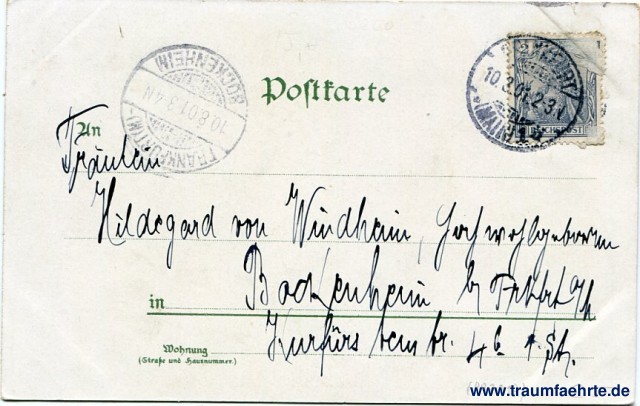 Postkarte
BOCKENHEIM
10.8.01.3-4N
FRANKFURT (MAIN)
FRANKFURT
10.8.01.2-3N
(MAIN)
REICHSPOST
An
Fräulein
Hildegard von Windheim, Hochwohlgeboren
Bockenheim b/ Frkfrt a/M
in
Kurfürstenstr. 46 1. St.
Wohnung
(Straße und Hausnummer.)
www.traumfaehrte.de